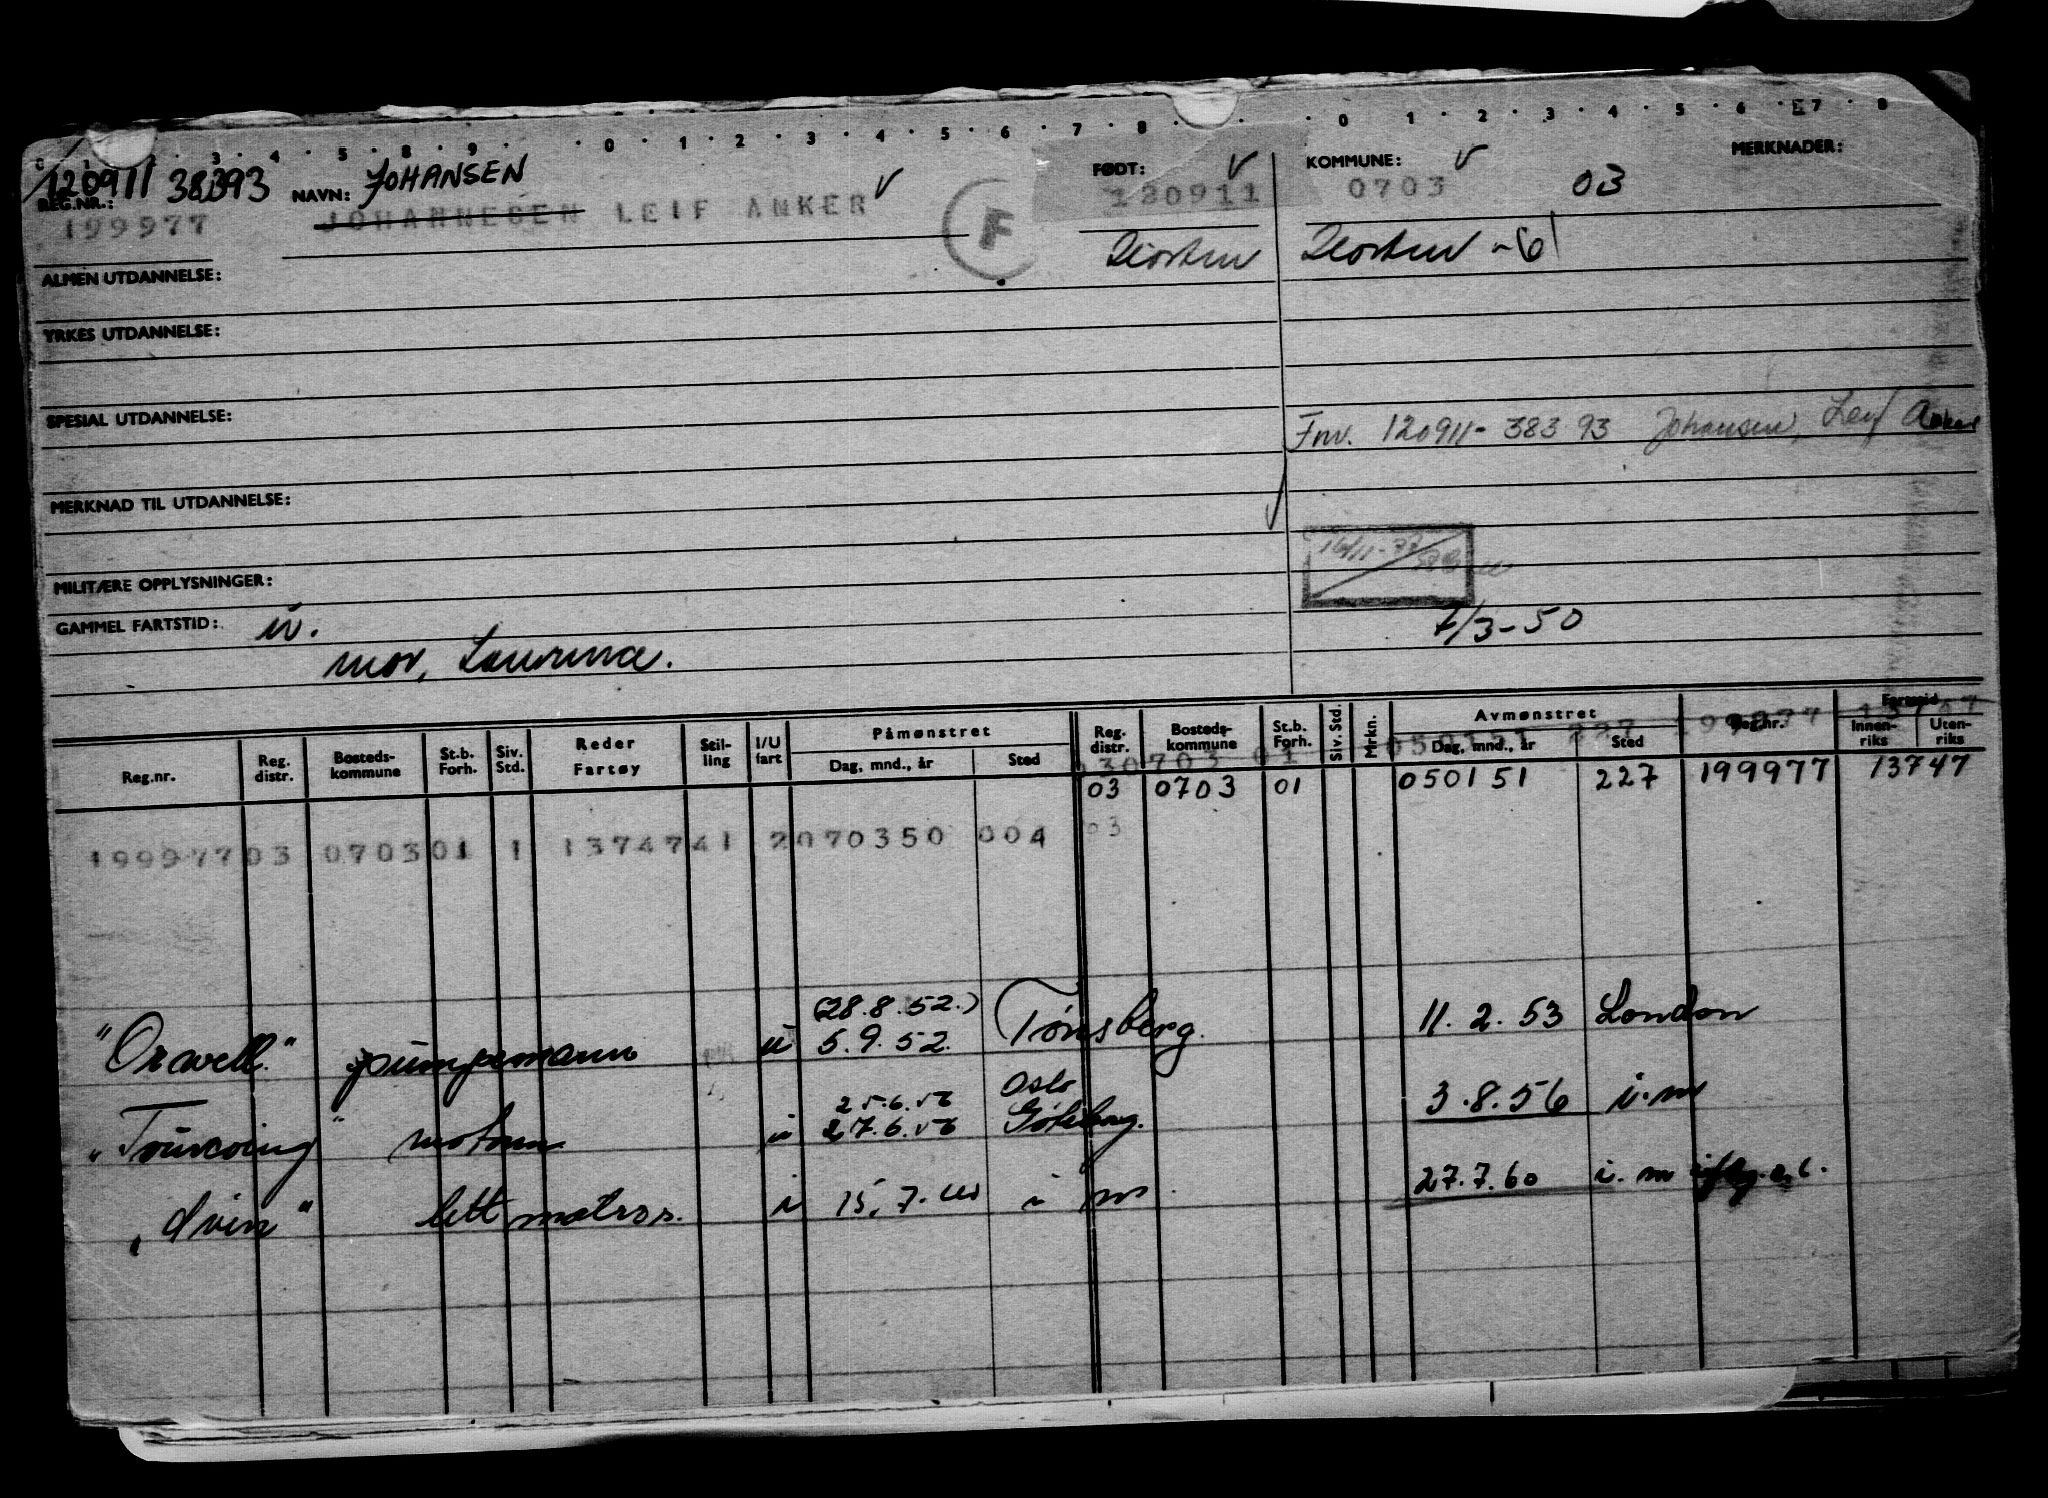 0 1 2 3 4 5 8 9 0 1 2 3 4 5 6 7 8 0 1 2 3 4 5 6 7 8
120911 38393 NAVN: JOHANSEN FØDT: KOMMUNE: MERKNADER:
REG.NR.: 199977 JOHANNESEN LEIF ANKER F 120911 0703 03
Horten Horten -61
ALMEN UTDANNELSE:
YRKES UTDANNELSE:
SPESIAL UTDANNELSE:
Fnr. 120911-38393 Johansen, Leif Anker
MERKNAD TIL UTDANNELSE:
MILITÆRE OPPLYSNINGER:
GAMMEL FARTSTID:
7/3-50
mor,
Påmønstret Avmønstret Fartstid
Reg.nr. Reg. distr. Bosteds-kommune St.b. Forh. Siv. Std. Reder Fartøy Stil-ling I/U fart Dag, mnd., år Sted Reg. distr. Bosteds-kommune St.b. Forh. Siv. Std. Mrkn. Dag, mnd., år Sted Reg.nr. Innen-riks Uten-riks
030703 01 050151 227 199977 13747
03 0703 01 050151 227 199977 13747
199977 03 0703 01 1 13747 41 2 070350 004 03
(28.8.52.)
"Orwell" pumpemann u 5.9.52. Tønsberg. 11.2.53 London
25.6.56 Oslo
"Tourcoing" motorm u 27.6.56 Göteborg. 3.8.56 i.m
"dvin" lett matros. i 15.7.60 i m 27.7.60 i.m